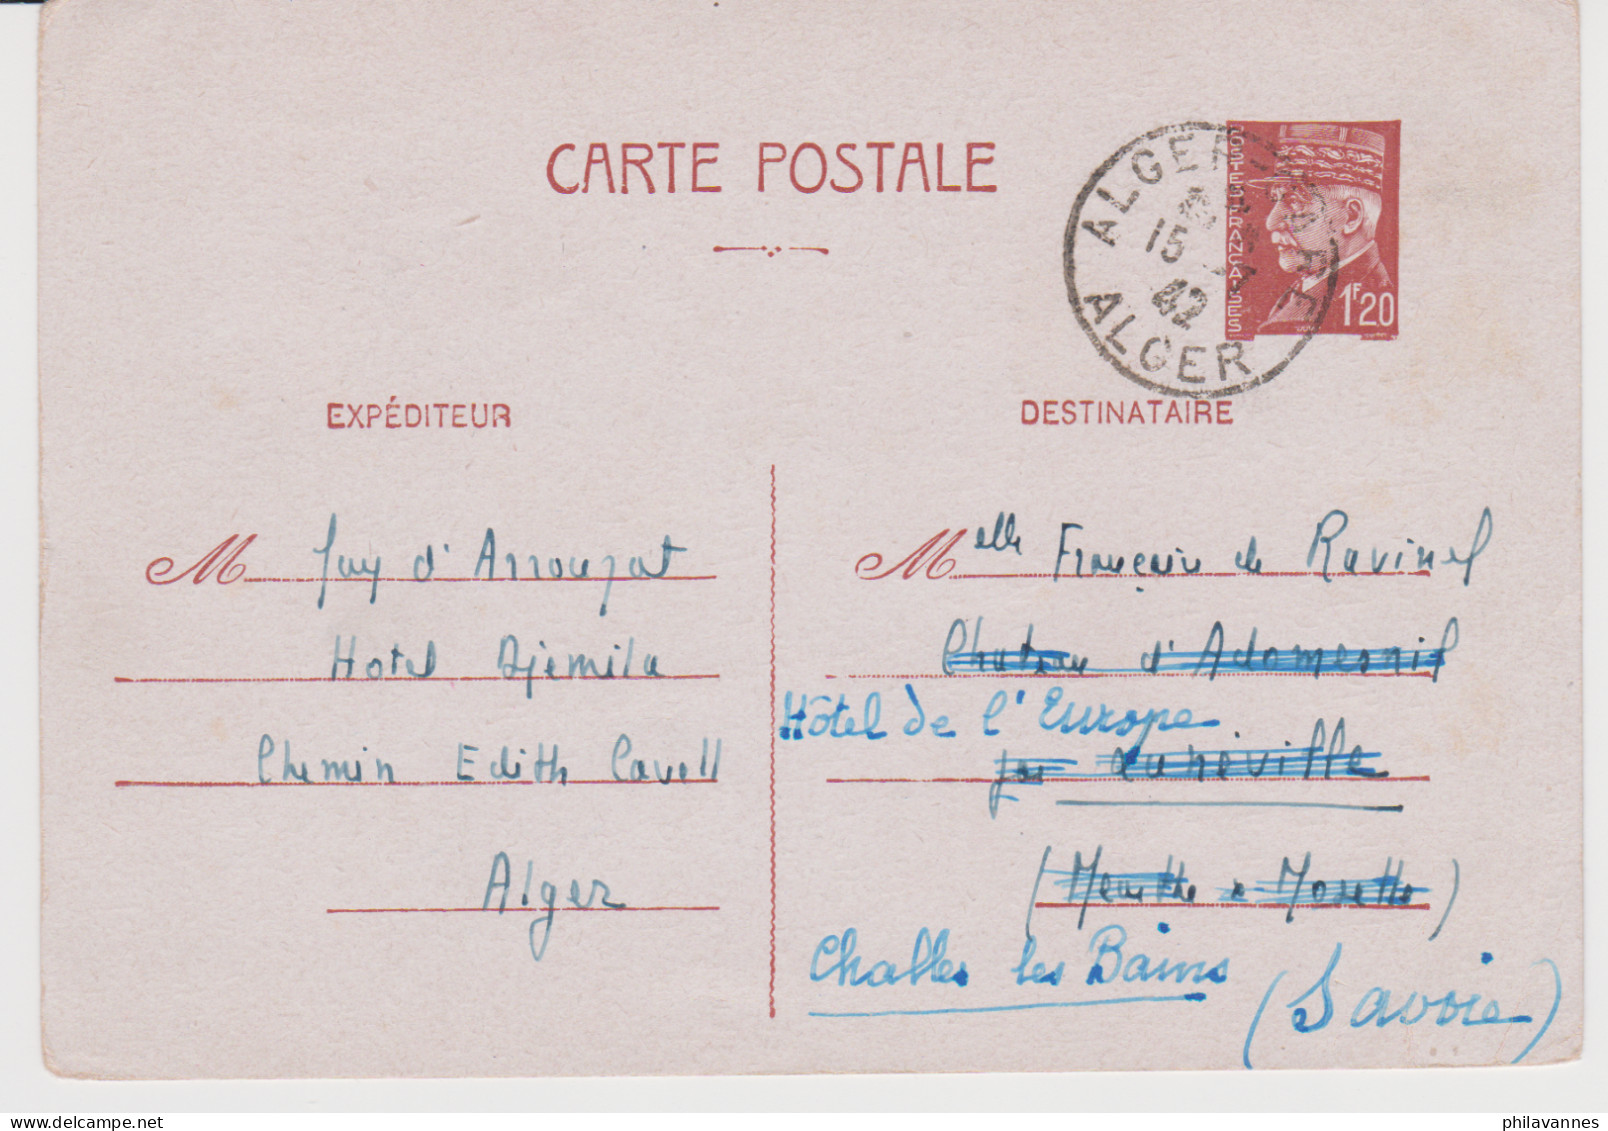 CARTE POSTALE
POSTES FRANÇAISES
1F20
ALGER-GARE
15 -7
42
ALGER
EXPÉDITEUR
M Guy d'Arrouzat
Hotel Djemila
Chemin Edith Cavell
Alger
DESTINATAIRE
Melle Françoise de Ravinel
Chateau d'Adomesnil
Hôtel de l'Europe
par Lunéville
(Meurthe & Moselle)
Challes les Bains
(Savoie)
philavannes